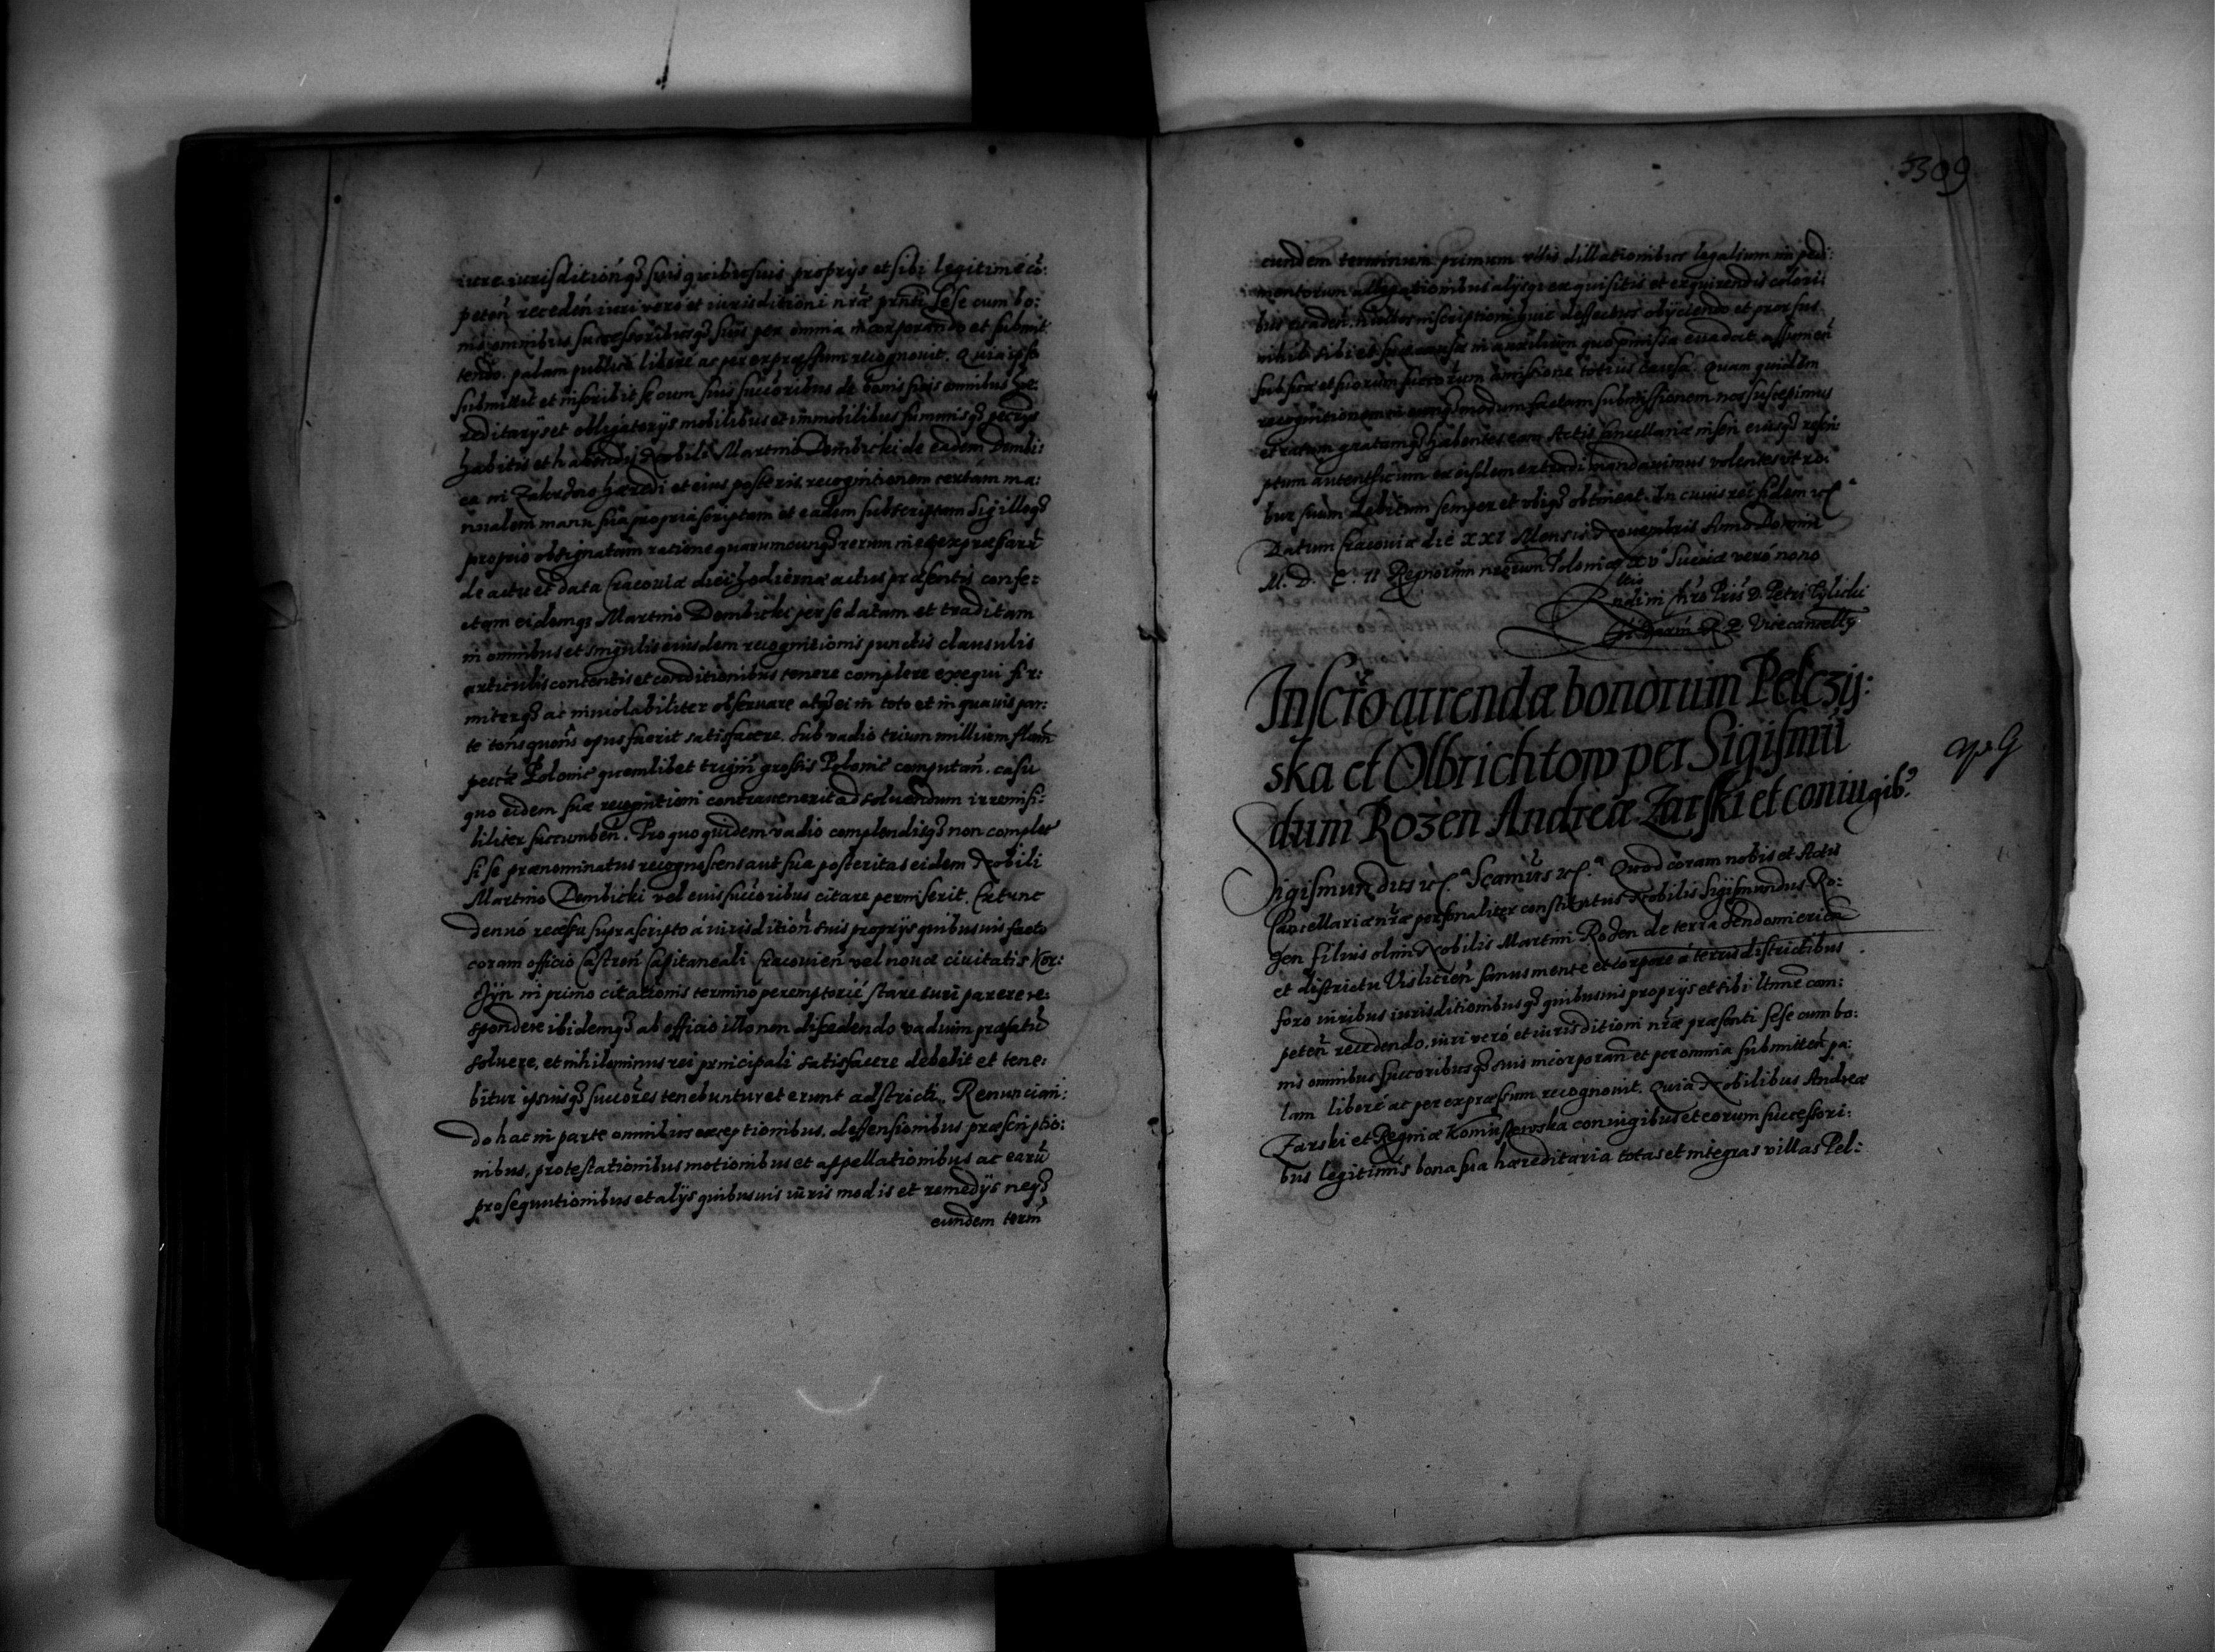 iure iurisditionq₃ suis quibusuis proprys et sibi legitime cō:
peten̄ receden̄ iuri vero et iurisditioni nr̄æ pn̄ti Sese cum bo:
nis omnibus successoribusq₃ suis per omnia incorporando et submit
tendo. palam publicè liberè ac per expressum recognouit. Quia ipse
submittit et inscribit se cum suis succoribus de bonis suis omnibus hæ:
reditarys et obligatorys mobilibus et immobilibus summisq₃ pecūys
habitis et habendis Nobili Martino Dembicki de eadem Dembi:
ca in Zakrzno hæredi et eius posteris recognitionem certam ma:
nualem manu sua propria scriptam et eadem subscriptam Sigilloq₃
proprio obsignatam ratione quarumcunq₃ rerum in ea expressarū
de actu et data Cracouiæ diei hodiernæ actus præsentis confe:
ctam eidemq₃ Martino Dembicki per se datam et traditam
in omnibus et singulis eiusdem recognitionis punctis clausulis
articulis contentis et conditionibus tenere complere exequi fir:
miterq₃ ac inuiolabiliter obseruare atq₃ ei in toto et in quauis par:
te toties quoties opus fuerit satisfacere. Sub vadio trium millium flan̄
pecūæ Polonic̄ quemlibet trigin̄ grossis Polonic̄ computan̄. casu
quo eidem suæ recognitioni contrauenerit ad soluendum irremisi:
biliter succumben̄. Pro quo quidem vadio complendisq₃ non complet̄
si se prænominatus recognoscens aut sua posteritas eidem Nobili
Martino Dembicki vel euis succoribus citare permiserit. Ex tunc
denuò recessu suprascripto à iurisdition̄ suis proprys quibusuis facto
coram officio Castren̄ Capitaneali Cracouien̄ vel nouæ ciuitatis Kor:
czyn in primo citationis termino peremptoriè stare iuri parere re:
spondere ibidemq₃ ab officio illo non discedendo vadium præfatū
soluere, et nihilominus rei principali satisfacere debebit et tene:
bitur ipsiusq₃ succores tenebuntur et erunt adstricti. Renuncian:
do hac in parte omnibus exceptionibus, deffensionibus præscriptio:
nibus, protestationibus motionibus et appellationibus ac earū
prosequutionibus et alys quibusuis iuris modis et remedys neq₃
eundem term̄
309
eundem terminum primum vllis dillationibus legalium impedi:
mentorum allegationibus alysq₃ exquisitis et exquirendis colori:
bus euaden̄. nullos inscriptioni huic deffectus obyciendo et prorsus
nihil sibi et suæ causæ in auxilium quo præmissa euadat assumen̄
sub sua et suorum succorum amissione totius causæ. Quam quidem
recognitionem eumq₃ modum factam submissionem nos suscepimus
et ratam gratamq₃ habentes eam Actis Cancellariæ inseri eiusq₃ rescri:
ptum autenticum ex eisdem extradi mandauimus volentes vt ro:
bur suum debitum semper et vbiq₃ obtineat. In cuius rei fidem etc̄
Datum Cracouiæ die XXI Mensis Nouembris Anno Domini
M. D. C. II Regnorum nrorum Poloniæ XV° Sueciæ vero nono
Rndi in Chro Pris D. Petri Tylicki
R. P. Vicecancelly
Inscr̄o arrendæ bonorum Pelczy:
ska et Olbrichtow per Sigismū
dum Rozen Andreæ Zarski et coniugib₃
Sigismundus etc̄. Scamus etc̄. Quod coram nobis et Actis
Cancellariæ nr̄æ personaliter constitutus Nobilis Sigismundus Ro:
zen filius olim Nobilis Martini Rozen de terra Sendomirien̄
et districtu Vislicien̄ sanus mente et corpore à terris districtibus
foro iuribus iurisditionibusq₃ quibusuis proprys et sibi ltīme com:
peten̄ recedendo, iuri verò et iurisditioni nr̄æ præsenti sese cum bo:
nis omnibus succoribusq₃ suis incorporan̄ et per omnia submitten̄ pa:
lam liberè ac per expressum recognouit. Quia Nobilibus Andreæ
Zarski et Reginæ Komiszewska coniugibus et eorum successori:
bus legitimis bona sua hæreditaria totas et integras villas Pel: